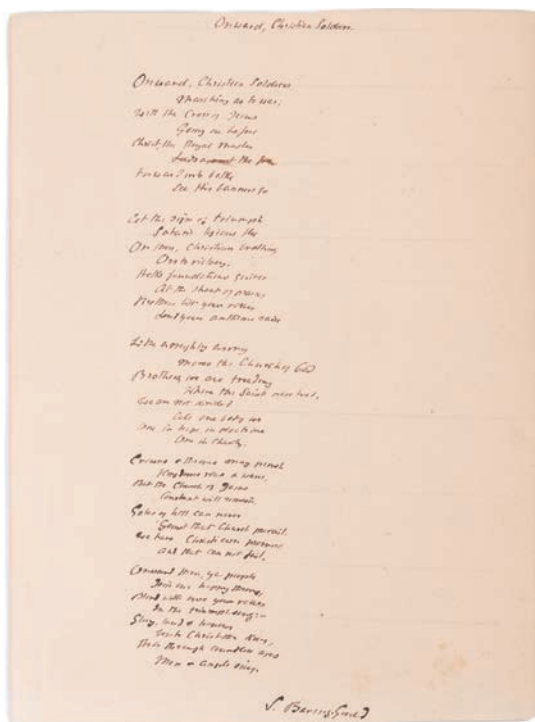 Onward, Christian Soldiers
Onward, Christian Soldiers
Marching as to war,
With the Cross of Jesus
Going on before
Christ, the Royal Master
Leads against the foe
Forward into battle
See His banners go
At the sign of triumph
Satan's legions flee
On then, Christian brothers
On to victory.
Hell's foundations quiver
At the shout of praise
Brothers lift your voices
Loud your anthems raise
Like a mighty army
Moves the Church of God
Brothers, we are treading
Where the Saints have trod.
We are not divided
All one body we
One in hope, in doctrine
One in charity.
Crowns & thrones may perish
Kingdoms rise & wane,
But the Church of Jesus
Constant will remain.
Gates of hell can never
'Gainst that Church prevail.
We have Christ's own promise
and that can not fail.
Onward then, ye people
Join our happy throng,
Blend with ours your voices
In the triumph song:-
Glory, laud & honour
Unto Christ the King,
This through countless ages
Men & Angels sing.
S. Baring-Gould